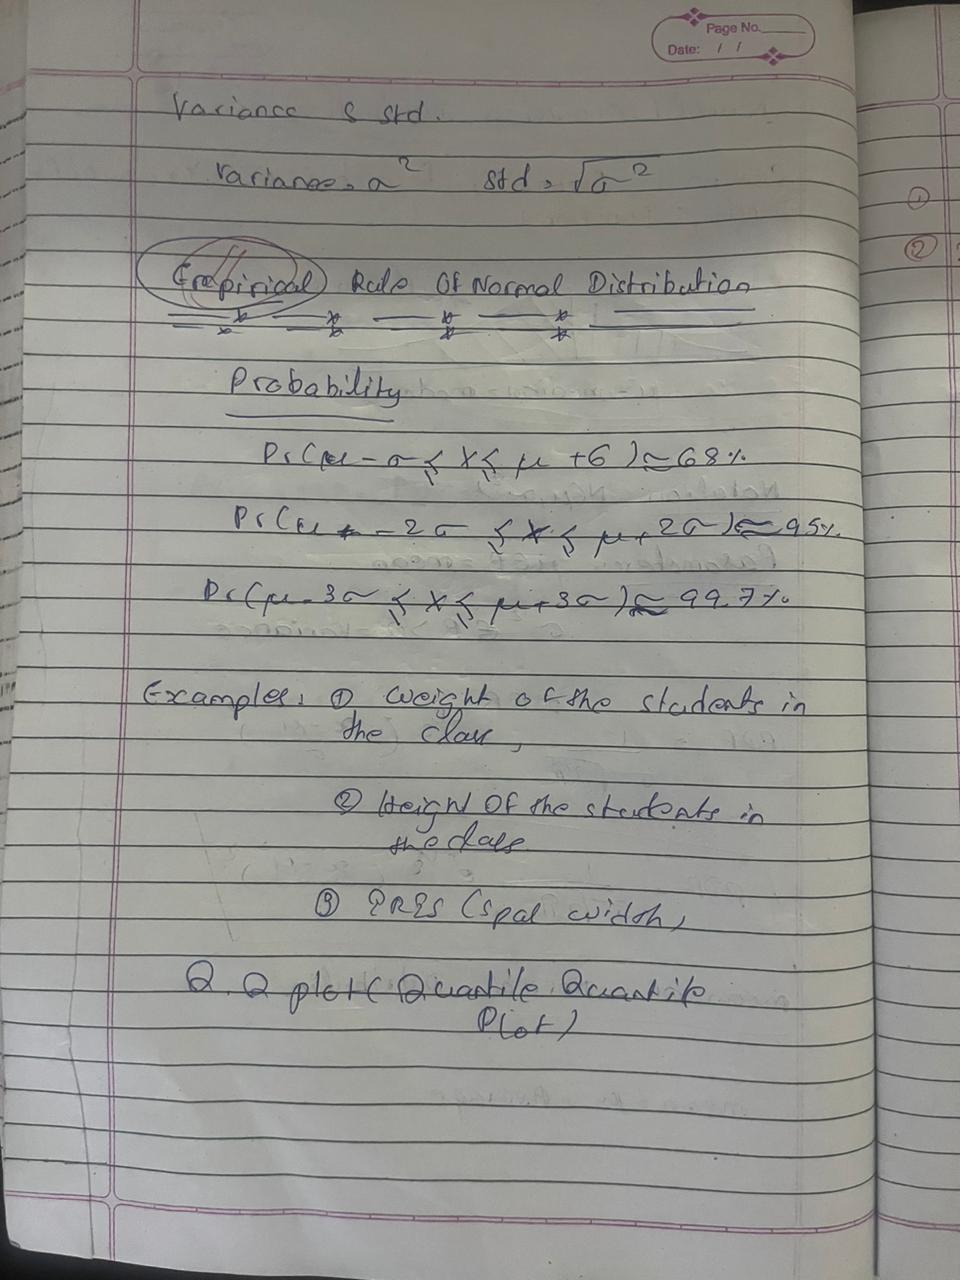 Page No.
Date: / /
Variance & std.
Variance = σ² std = √σ²
①
②
Empirical Rule Of Normal Distribution
Probability
Pr(μ - σ ≤ X ≤ μ + 6) ≈ 68%
Pr(μ - 2σ ≤ X ≤ μ + 2σ) ≈ 95%
Pr(μ - 3σ ≤ X ≤ μ + 3σ) ≈ 99.7%
Examples: ① Weight of the students in
the class,
② Height Of the students in
the class
③ IRIS (Spal width)
Q. Q plot (Quantile Quantile
Plot)